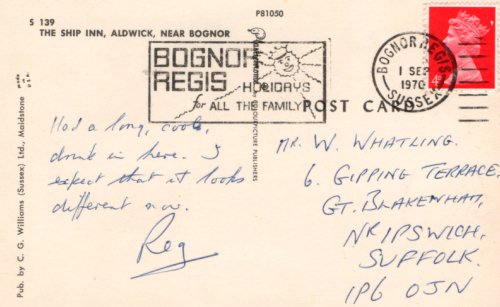 S 139
THE SHIP INN, ALDWICK, NEAR BOGNOR
P81050
BOGNOR
REGIS
HOLIDAYS
for ALL THE FAMILY
BOGNOR REGIS
1 SEP
1970
SUSSEX
POST CARD
Had a long, cool,
drink in here. I
expect that it looks
different now.
Reg
Mr. W. WHATLING.
6. GIPPING TERRACE,
GT. BLAKENHAM,
NR IPSWICH,
SUFFOLK.
IP6 OJN
Pub. by C. G. Williams (Sussex) Ltd., Maidstone